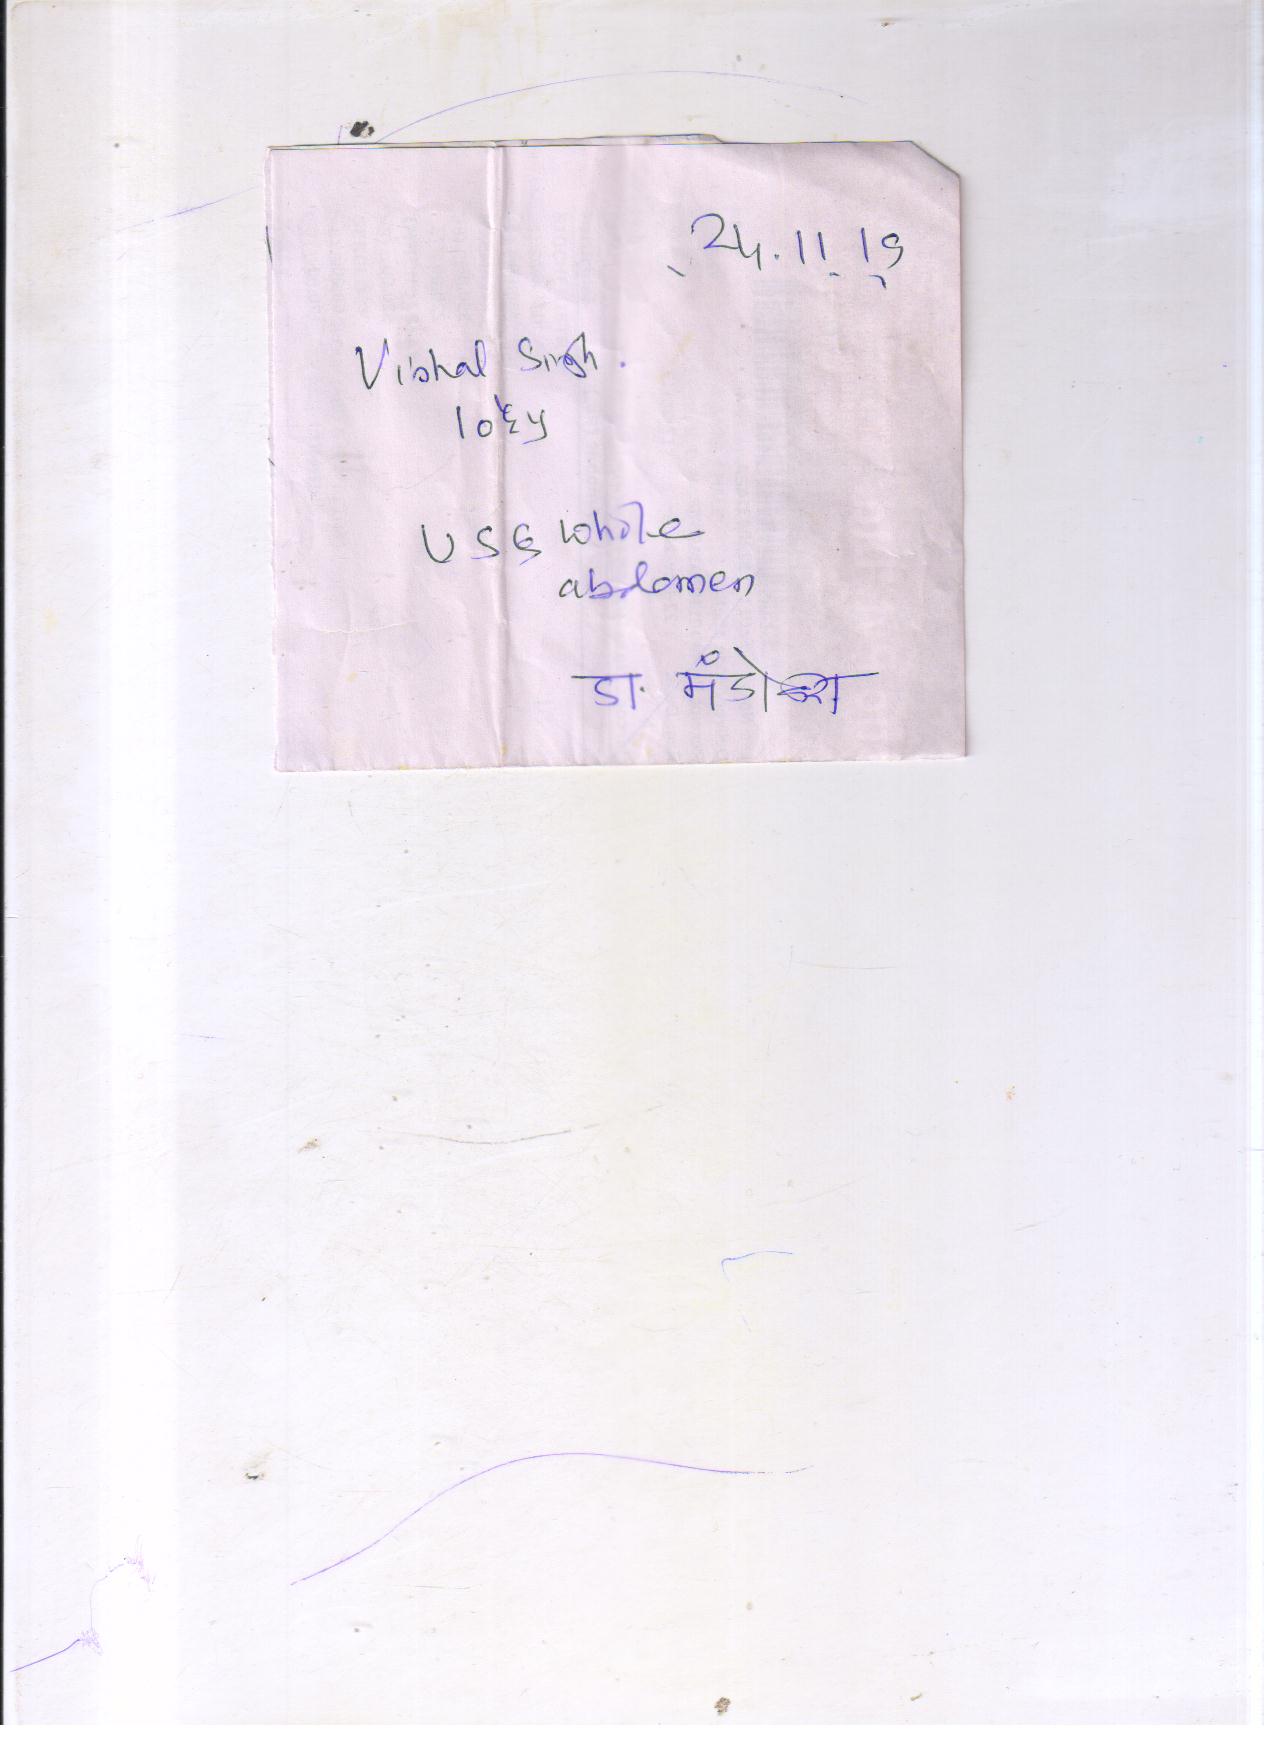 24.11.19
Vishal Singh.
10
USG whole
abdomen
डा. मंडो